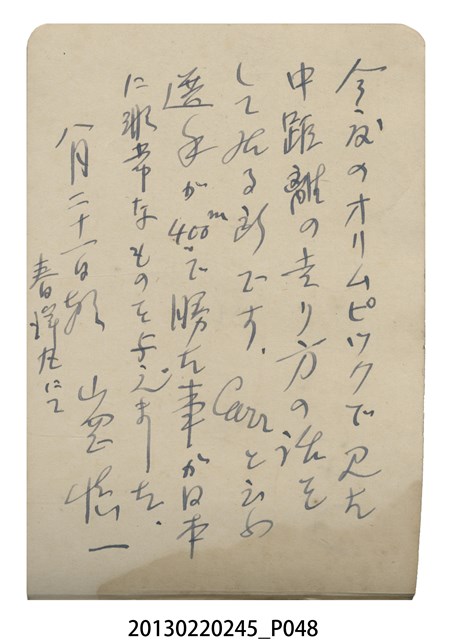 今度のオリムピックで見た
中距離の走り方の話を
して居る所です。Carrと云ふ
選手が400mで勝た事が日本
に非常なものを与えました。
八月二十一日朝 山岡慎一
春洋丸にて
20130220245_P048